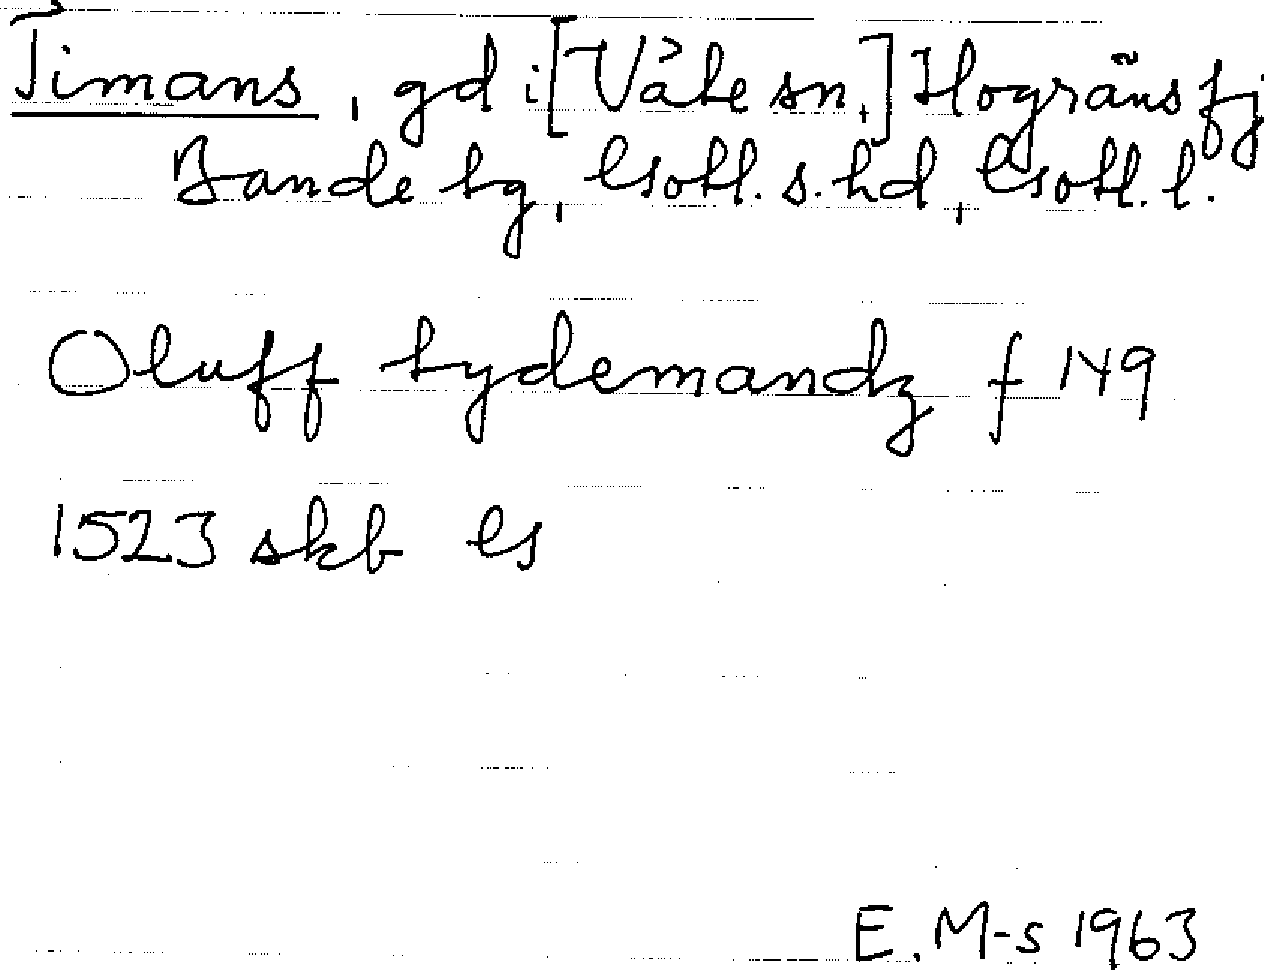 Timans, gd i [Väte sn,] Hogräns fj
Bande tg, Gotl. s. hd, Gotl. l.
Oluff tydemandz f 149
1523 skb G
E. M-s 1963